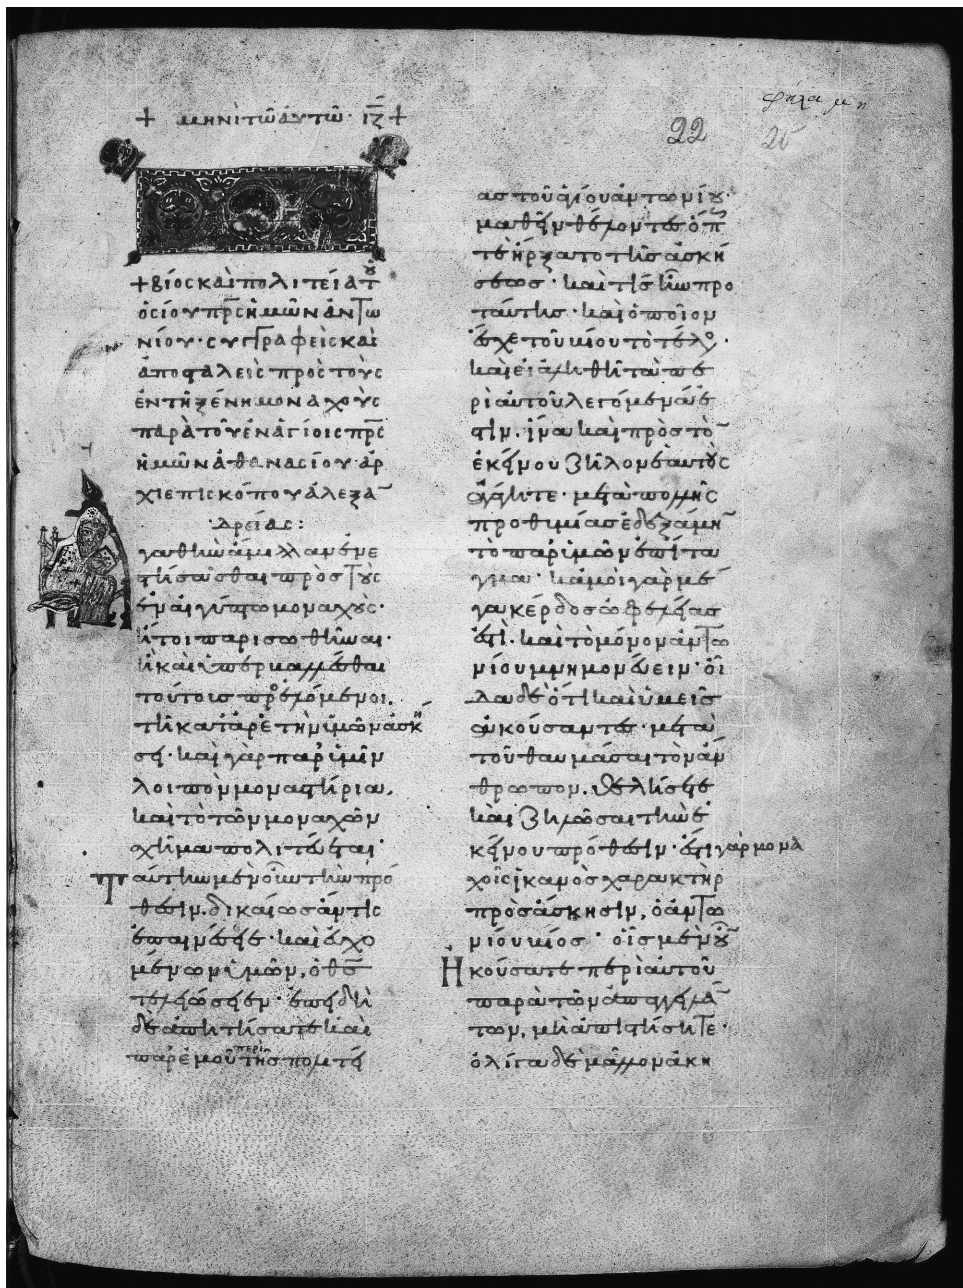 + μηνὶ τῶ αὐτῶ· ιζ +
22
25
+ βίος καὶ πολιτεία τοῦ
ὁσίου πρς ἡμῶν ἀντω
νίου· συγγραφεὶς καὶ
ἀποσταλεὶς πρὸς τοὺς
ἐν τῆ ξένη μοναχοὺς
παρὰ τοῦ ἐν ἁγίοις πρς
ἡμῶν ἀθανασίου ἀρ
χιεπισκόπου ἀλεξα
δρείας:
γαθὴν ἅμιλλαν ἐνε
στήσασθαι πρὸς τοὺς
ἐν αἰγύπτω μοναχούς·
ἤτοι παρισωθῆναι·
ἢ καὶ ὑπερβαλλέσθαι
τούτοις προελόμενοι.
τῆ κατ' ἀρετὴν ὑμῶν ἀσκή
σει· καὶ γὰρ παρ' ὑμῖν
λοιπὸν μοναστήρια,
καὶ τὸ τῶν μοναχῶν
σχῆμα πολιτεύεται·
ταύτην μὲν οὖν τὴν πρό
θεσιν. δικαίως ἄν τις
ἐπαινέσειε· καὶ εὐχο
μένων ὑμῶν, ὁ θς
τελειώσειεν· ἐπειδὴ
δὲ ἀπητήσατε καὶ
παρ' ἐμοῦ περὶ τῆς πολιτεί
ας τοῦ ἁγίου ἀντωνίου·
μαθεῖν θέλοντες ὅπως
τε ἤρξατο τῆς ἀσκή
σεως· καὶ τίς ἦν προ
ταύτης· καὶ ὁποῖον
ἔσχε τοῦ βίου τὸ τέλος·
καὶ εἰ ἀληθῆ τὰ πε
ρὶ αὐτοῦ λεγόμενά ἐ
στιν. ἵνα καὶ πρὸς τὸν
ἐκείνου ζῆλον ἑαυτοὺς
ἀγάγητε· μετὰ πολλῆς
προθυμίας ἐδεξάμην
τὸ παρ' ὑμῶν ἐπίτα
γμα· κἀμοὶ γὰρ μέ
γα κέρδος ὠφελείας
ἐστὶ. καὶ τὸ μόνον ἀντω
νίου μνημονεύειν· οἶ
δα δὲ ὅτι καὶ ὑμεῖς
ἀκούσαντες· μετὰ
τοῦ θαυμάσαι τὸν ἄν
θρωπον. θελήσετε
καὶ ζηλῶσαι τὴν ἐ
κείνου πρόθεσιν· ἔστι γὰρ μονα
χοῖς ἱκανὸς χαρακτὴρ
πρὸς ἄσκησιν, ὁ ἀντω
νίου βίος· οἷς μὲν οὖν
ἠκούσατε περὶ αὐτοῦ
παρὰ τῶν ἀπαγγειλάν
των, μὴ ἀπιστήσητε·
ὀλίγα δὲ μᾶλλον ἀκη